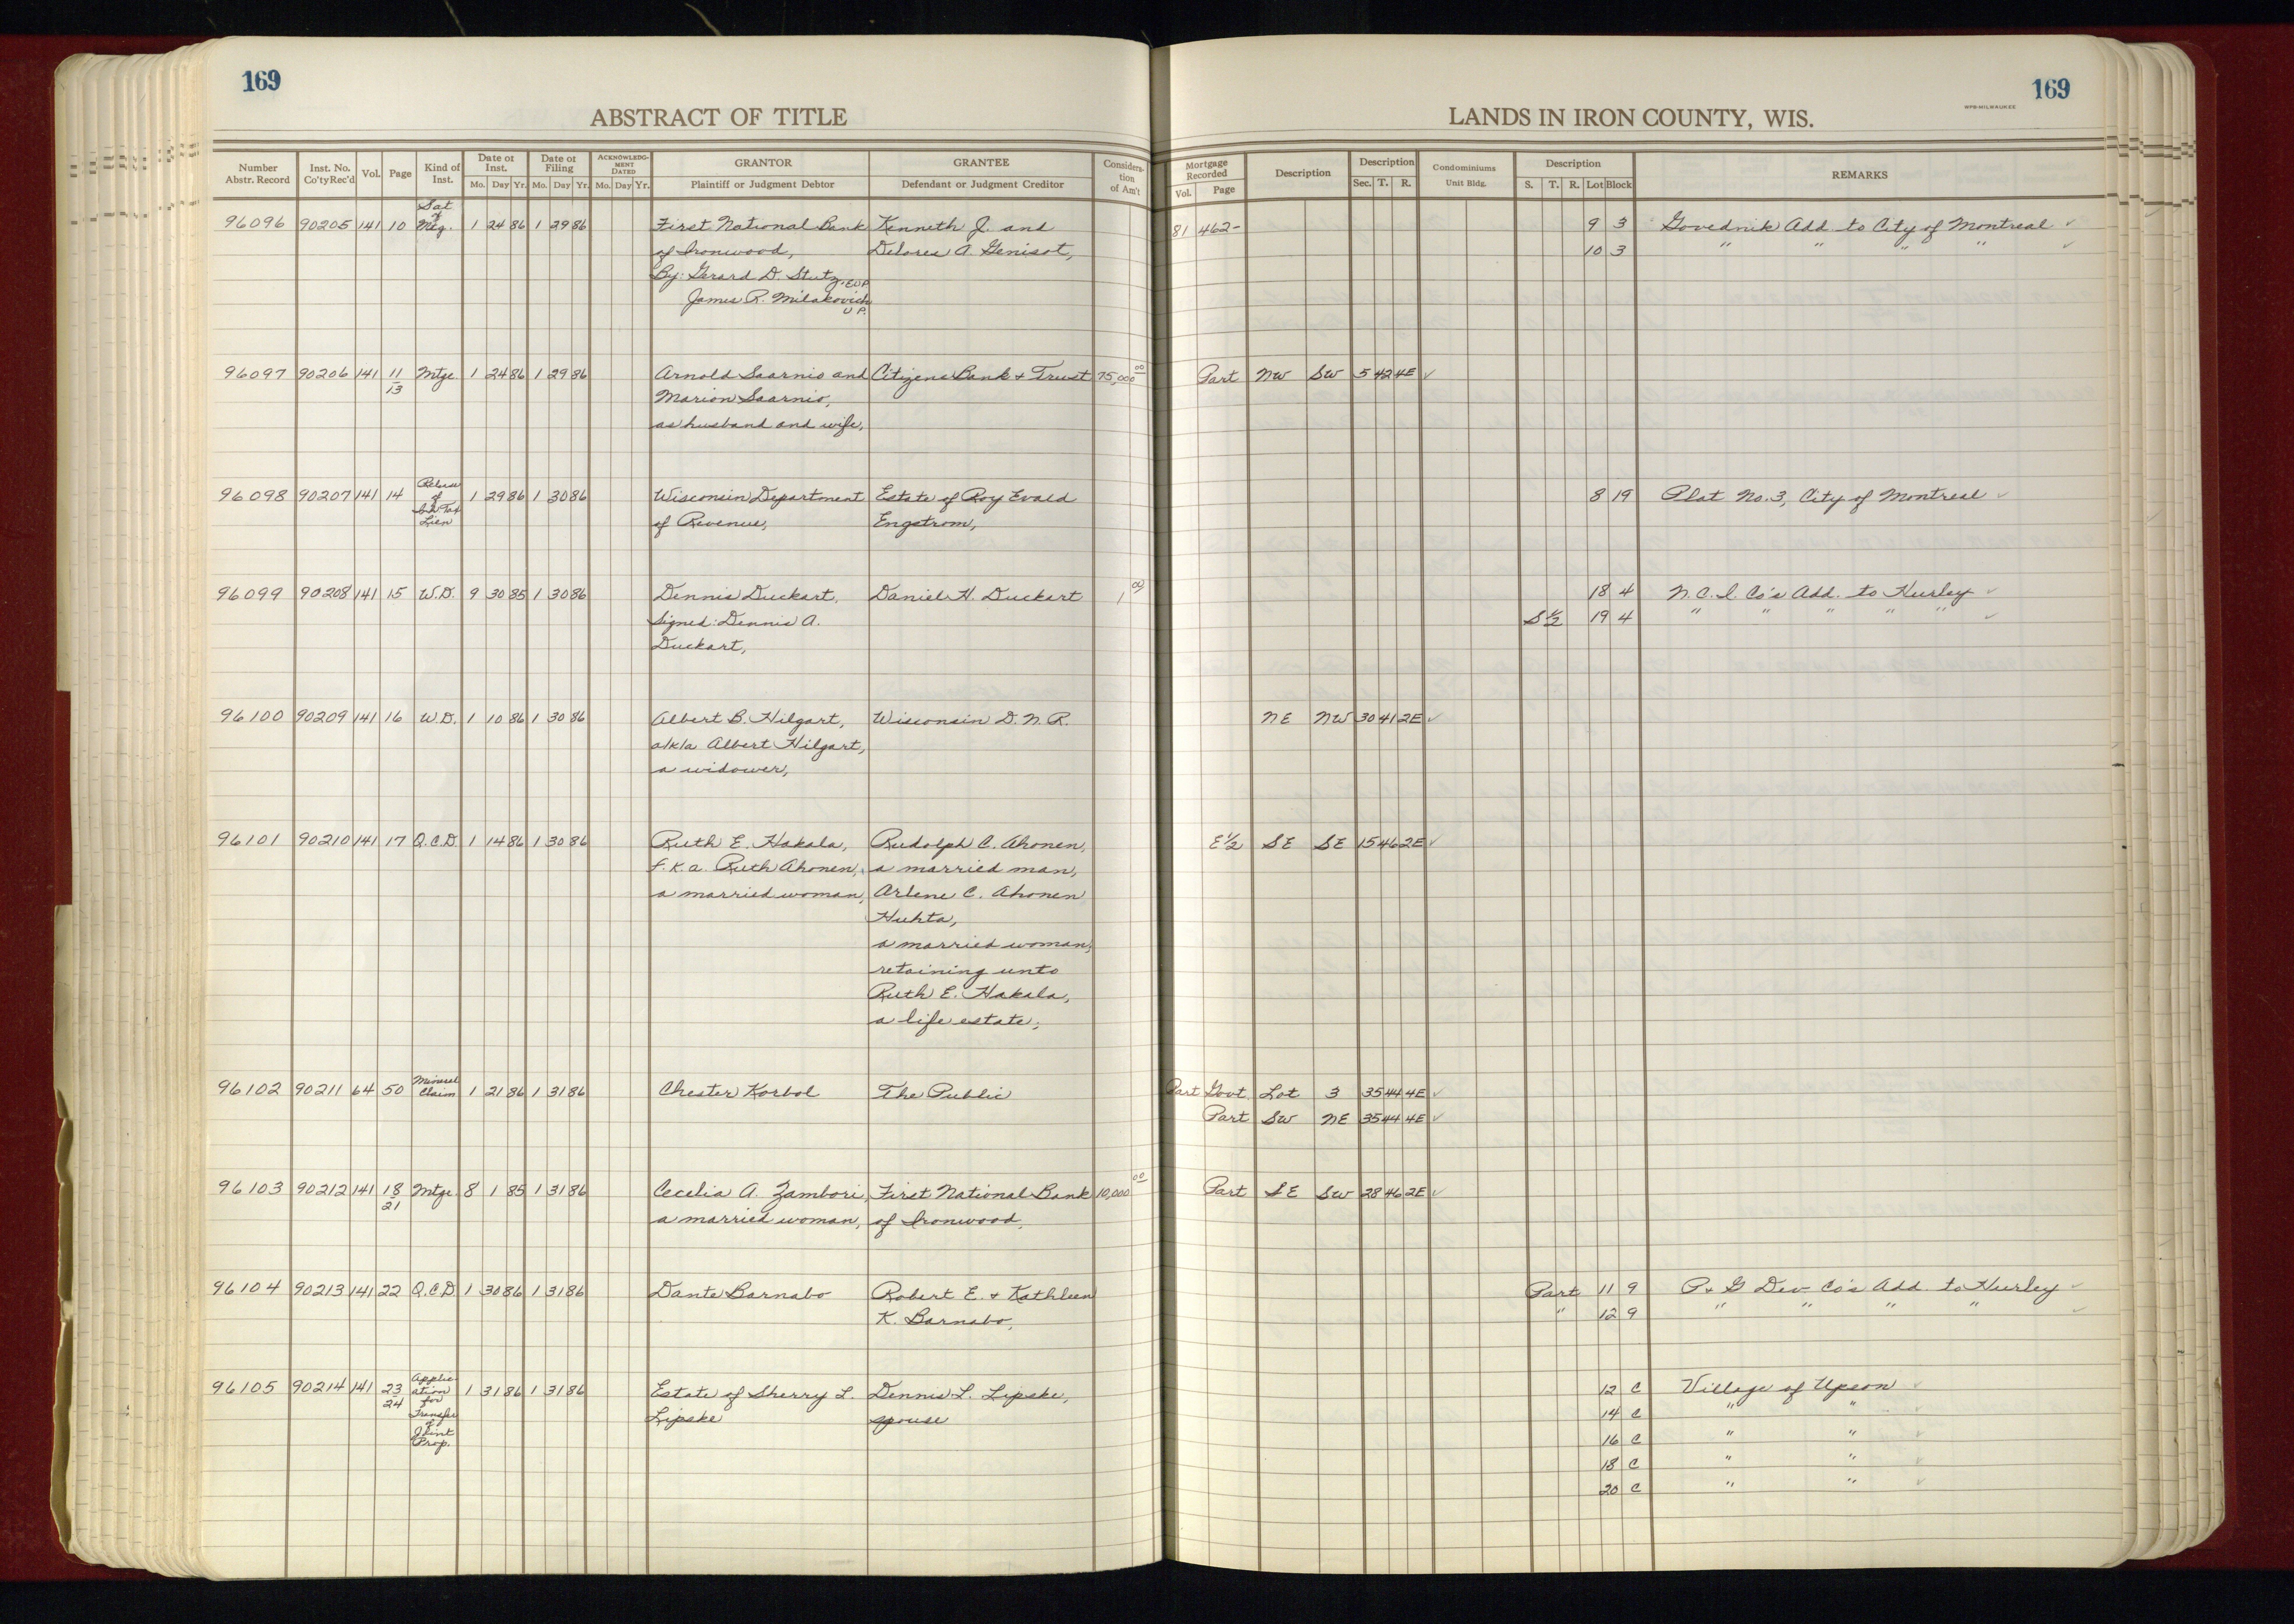 169
169
WPB-MILWAUKEE
ABSTRACT OF TITLE
LANDS IN IRON COUNTY, WIS.
Number Abstr. Record Inst. No. Co'ty Rec'd Vol. Page Kind of Inst. Date of Inst. Mo. Day Yr. Date of Filing Mo. Day Yr. ACKNOWLEDGMENT DATED Mo. Day Yr. GRANTOR Plaintiff or Judgment Debtor GRANTEE Defendant or Judgment Creditor Consideration of Am't Mortgage Recorded Vol. Page Description Description Sec. T. R. Condominiums Unit Bldg. Description S. T. R. Lot Block REMARKS
96096 90205 141 10 Sat of Mtg. 1 24 86 1 29 86 First National Bank Kenneth J. and 81 462- 9 3 Govednik Add. to City of Montreal ✓
of Ironwood, Delores A. Genisot, 10 3 " " " " ✓
By: Gerard D. Stutz, EVP
James R. Milakovich
V P.
96097 90206 141 11/13 Mtge. 1 24 86 1 29 86 Arnold Saarnio and Citizens Bank & Trust 75,000 00 Part NW SW 5 42 4E ✓
Marion Saarnio,
as husband and wife,
96098 90207 141 14 Release of Inh Tax Lien 1 29 86 1 30 86 Wisconsin Department Estate of Roy Evald 8 19 Plat No. 3, City of Montreal ✓
of Revenue, Engstrom,
96099 90208 141 15 W.D. 9 30 85 1 30 86 Dennis Duckart, Daniel H. Duckart 1 00 18 4 N. C. I. Co's Add. to Hurley ✓
Signed: Dennis A. S 1/2 19 4 " " " " " ✓
Duckart,
96100 90209 141 16 W.D. 1 10 86 1 30 86 Albert B. Hilgart, Wisconsin D. N. R. NE NW 30 41 2E ✓
a/k/a Albert Hilgart,
a widower,
96101 90210 141 17 Q.C.D. 1 14 86 1 30 86 Ruth E. Hakala, Rudolph C. Ahonen, E 1/2 SE SE 15 46 2E ✓
f.k.a. Ruth Ahonen, a married man,
a married woman, Arlene C. Ahonen
Huhta,
a married woman,
retaining unto
Ruth E. Hakala,
a life estate,
96102 90211 64 50 Mineral Claim 1 21 86 1 31 86 Chester Korbol The Public Part Govt. Lot 3 35 44 4E ✓
Part SW NE 35 44 4E ✓
96103 90212 141 18/21 Mtge. 8 1 85 1 31 86 Cecelia A. Zambori, First National Bank 10,000 00 Part SE SW 28 46 2E ✓
a married woman, of Ironwood,
96104 90213 141 22 Q.C.D. 1 30 86 1 31 86 Dante Barnabo Robert E. & Kathleen Part 11 9 P. & G Dev Co's Add. to Hurley ✓
K. Barnabo, " 12 9 " " " " ✓
96105 90214 141 23/24 Application for Transfer of Joint Prop. 1 31 86 1 31 86 Estate of Sherry L. Dennis L. Lipske, 12 C Village of Upson ✓
Lipske spouse 14 C " " ✓
16 C " " ✓
18 C " " ✓
20 C " " ✓